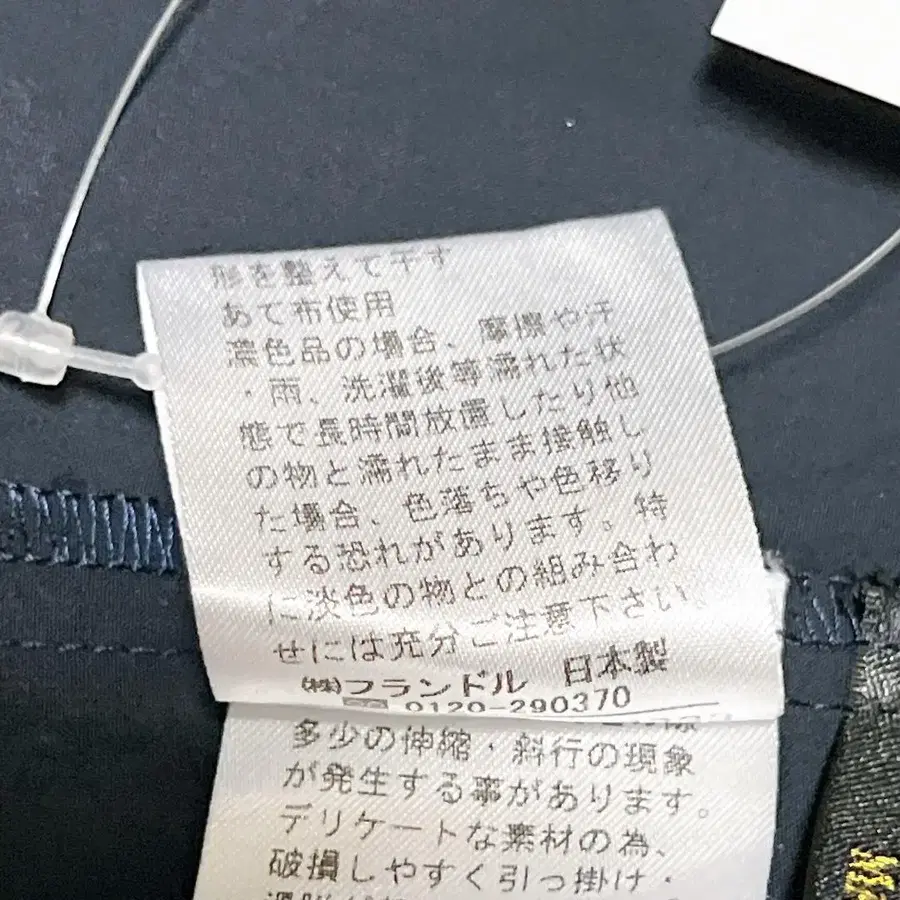 形を整えて干す
あて布使用
濃色品の場合、摩擦や汗
・雨、洗濯後等濡れた状
態で長時間放置したり他
の物と濡れたまま接触し
た場合、色落ちや色移り
する恐れがあります。特
に淡色の物との組み合わ
せには充分ご注意下さい。
(株)フランドル 日本製
0120-290370
多少の伸縮・斜行の現象
が発生する事があります。
デリケートな素材の為、
破損しやすく引っ掛け・